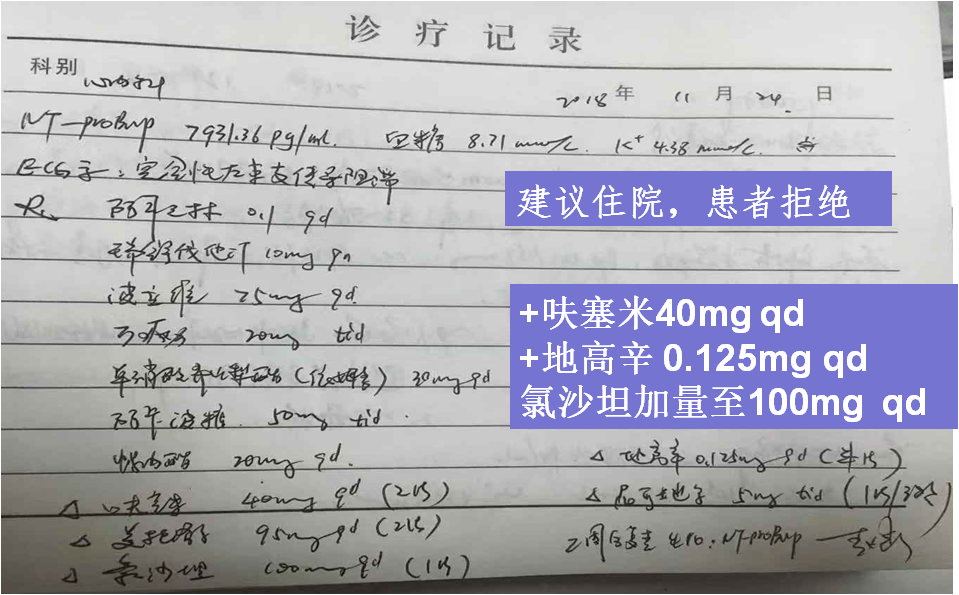 诊疗记录
科别 心内科
2018年 11月 24日
NT-proBnp 7931.36 pg/ml. 血糖 8.71 mmol/L. K+ 4.38 mmol/L.
ECG示:完全性左束支传导阻滞
建议住院，患者拒绝
R: 阿司匹林 0.1 qd
瑞舒伐他汀 10mg qn
波立维 75mg qd.
+呋塞米40mg qd
+地高辛 0.125mg qd
氯沙坦加量至100mg qd
20mg tid
单硝酸异山梨酯( ) 30mg qd
阿卡波糖. 50mg tid.
螺内酯 20mg qd.
△ 地高辛 0.125mg qd (半片)
△ 呋塞米 40mg qd (2片)
△ 5mg tid (1片/ )
△ 美托洛尔 95mg qd (2片)
2周后复查 NT-proBnp
△ 氯沙坦 100mg qd (1片)